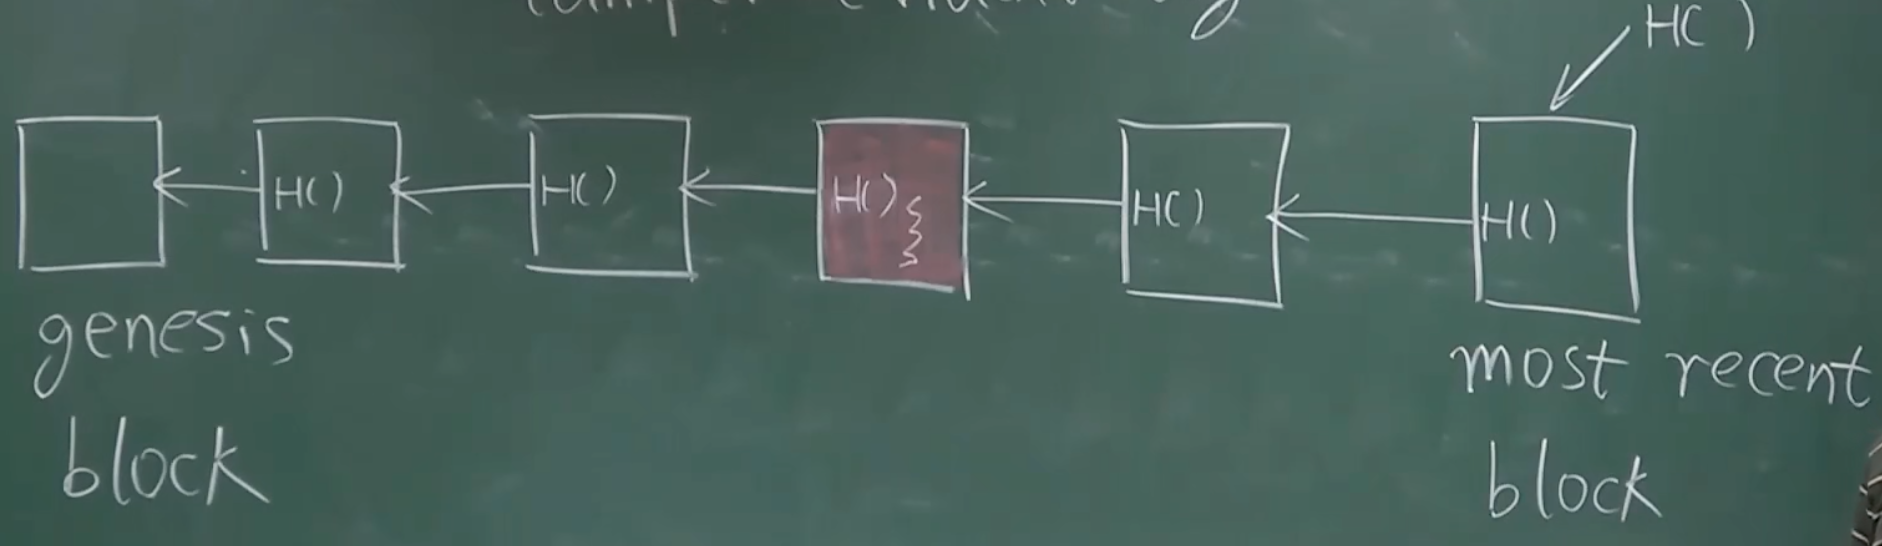 H( )
H() H() H() H( ) H()
genesis
block
most recent
block